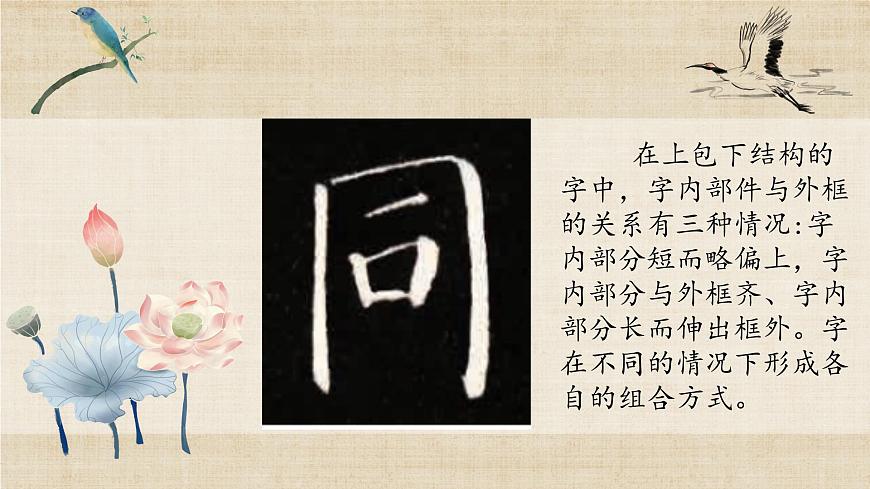 同
在上包下结构的
字中，字内部件与外框
的关系有三种情况:字
内部分短而略偏上，字
内部分与外框齐、字内
部分长而伸出框外。字
在不同的情况下形成各
自的组合方式。